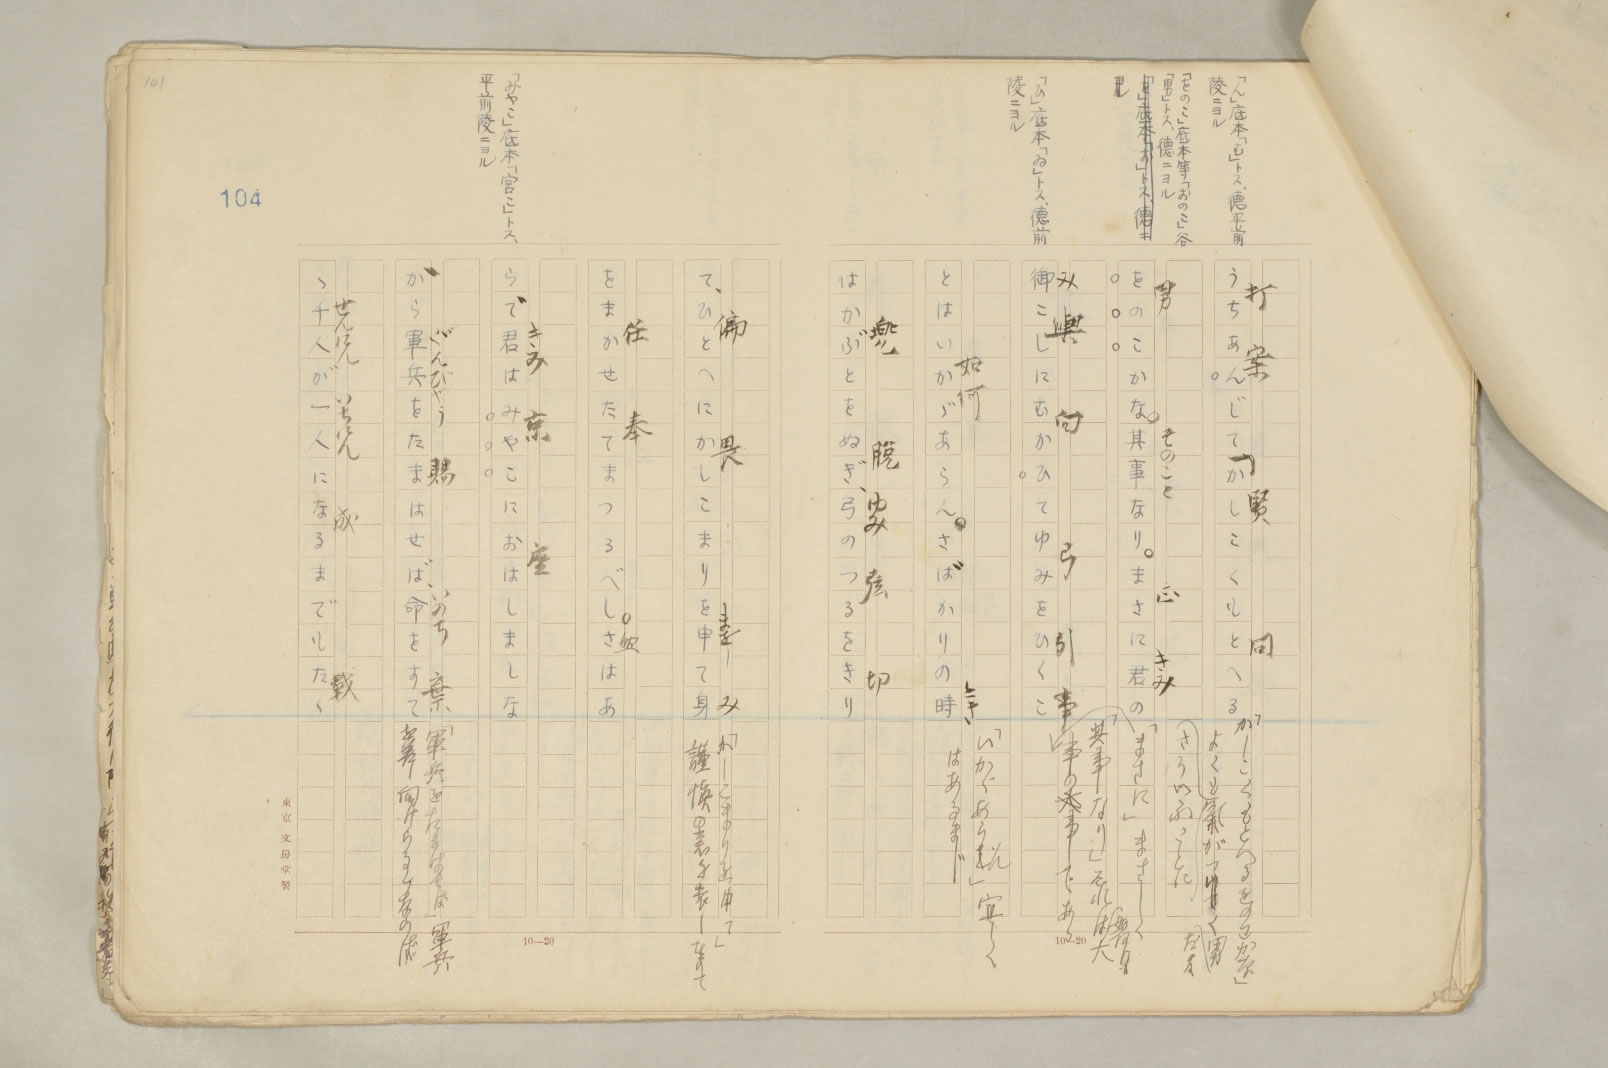 101
104
「ん」底本「む」トス、德平前
陵ニヨル
「をのこ」底本等「おのこ」谷
「男」トス、德ニヨル
「ひ」底本「ゐ」トス、德前
陵ニヨル
「みやこ」底本「宮こ」トス、
平前陵ニヨル
打 案 賢 問
うちあんじてかしこくもとへる
男 そのこと 正 きみ
をのこかな。其事なり。まさに君の
み 輿 向 弓 引 事
御こしにむかひてゆみをひくこ
如何 とき
とはいかゞあらん。さばかりの時
兜 脱 ゆみ 弦 切
はかぶとをぬぎ、弓のつるをきり
偏 畏 まをし み
て、ひとへにかしこまりを申て身
任 奉 然
をまかせたてまつるべし。さはあ
きみ 京 座
らで君はみやこにおはしましな
ぐんびやう 賜 いのち 棄
がら軍兵をたまはせば、命をすて
せんにん いちにん 成 戦
ゝ千人が一人になるまでもたゝ
「かしこくもとへるをのこかな」
よくも氣がつく男
さういふことに
「まさに」まさしく
「其事なり」それは大
事の事である
「いかゞあらん」宜しく
はあるまじ
「かしこまりを申て」
謹愼の意を表しまして
「軍兵をたまはせば」軍兵
を差向けらるるならば
10—20
10—20
東京 文房堂製